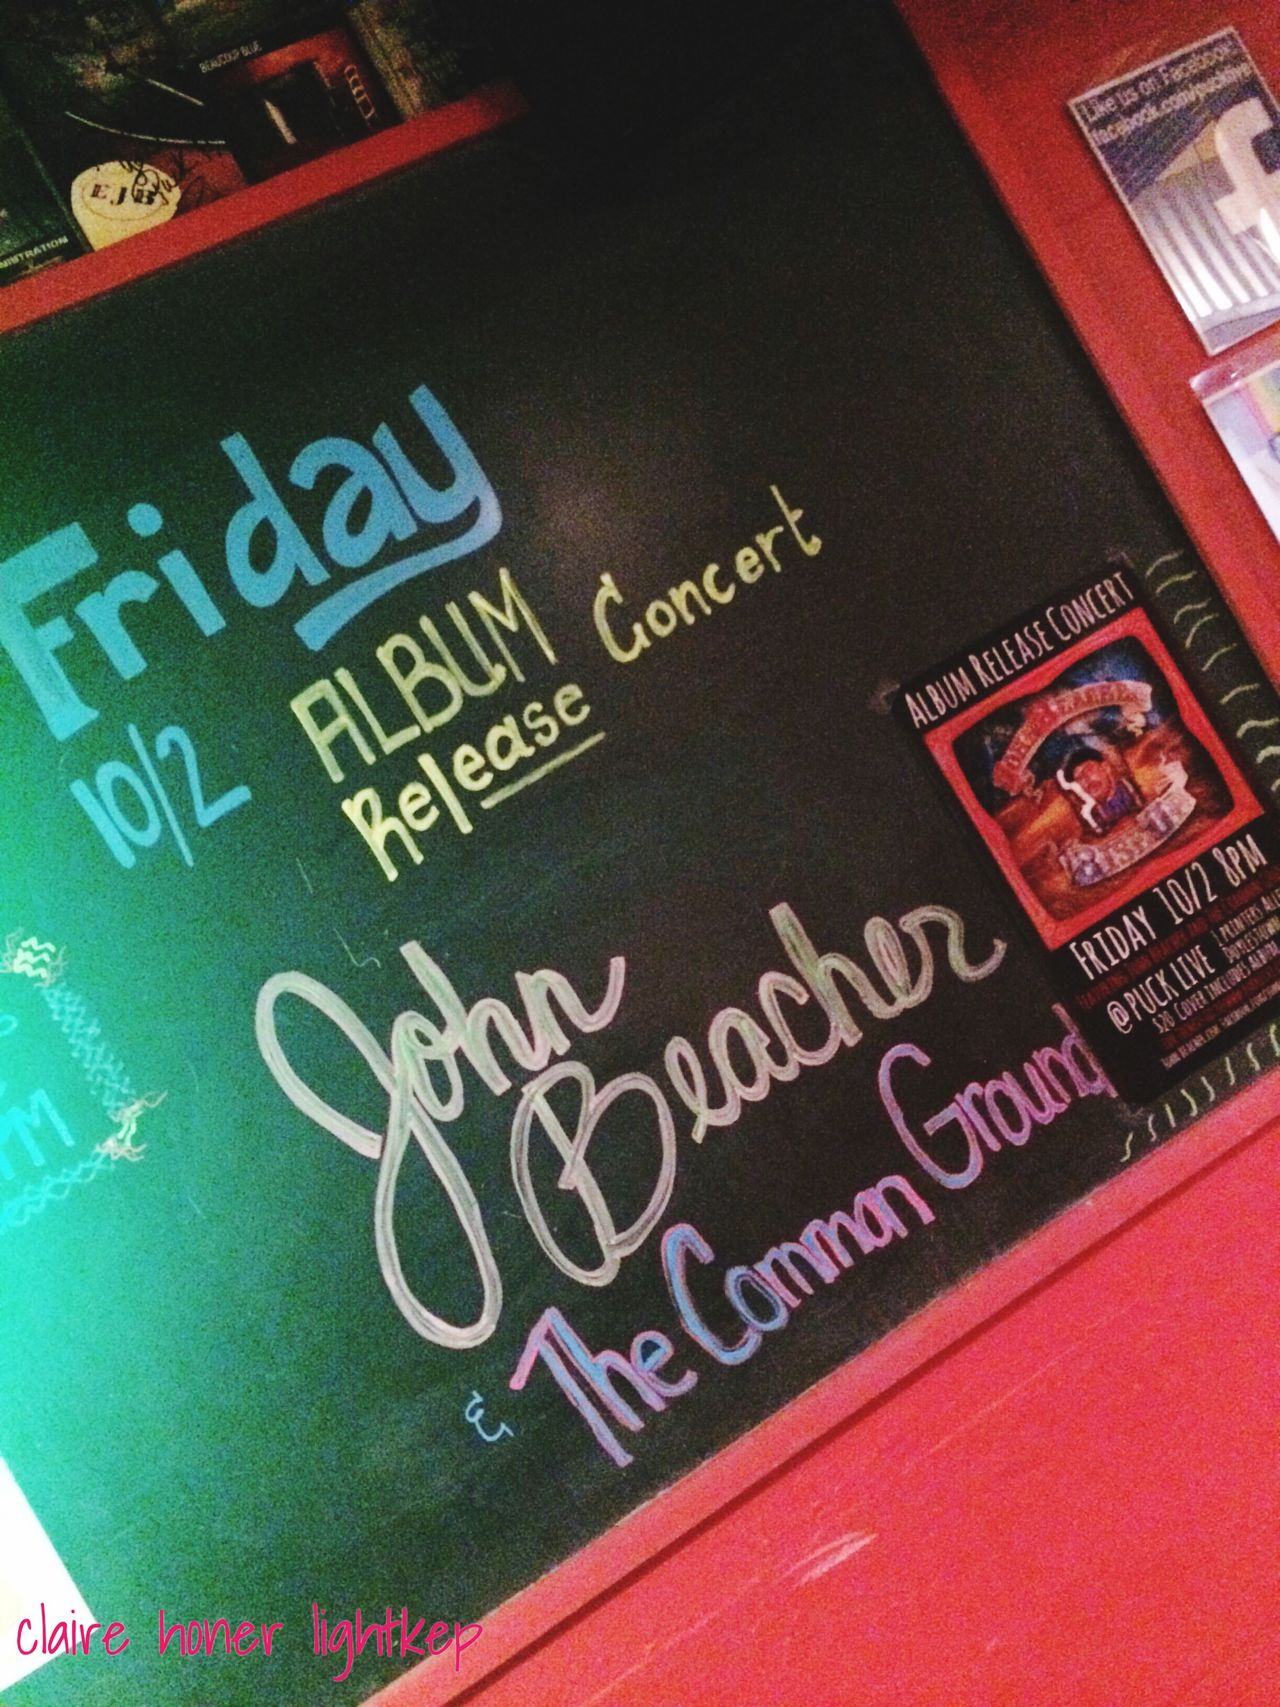 BEAUCOUP BLUE
EJB
Like us on Facebook
Friday
10/2
ALBUM
Release Concert
John
Beacher
& The Common Ground
ALBUM RELEASE CONCERT
RISE UP
FRIDAY 10/2 8PM
@ PUCK LIVE
$20 COVER INCLUDES
PM
claire honer lightkep